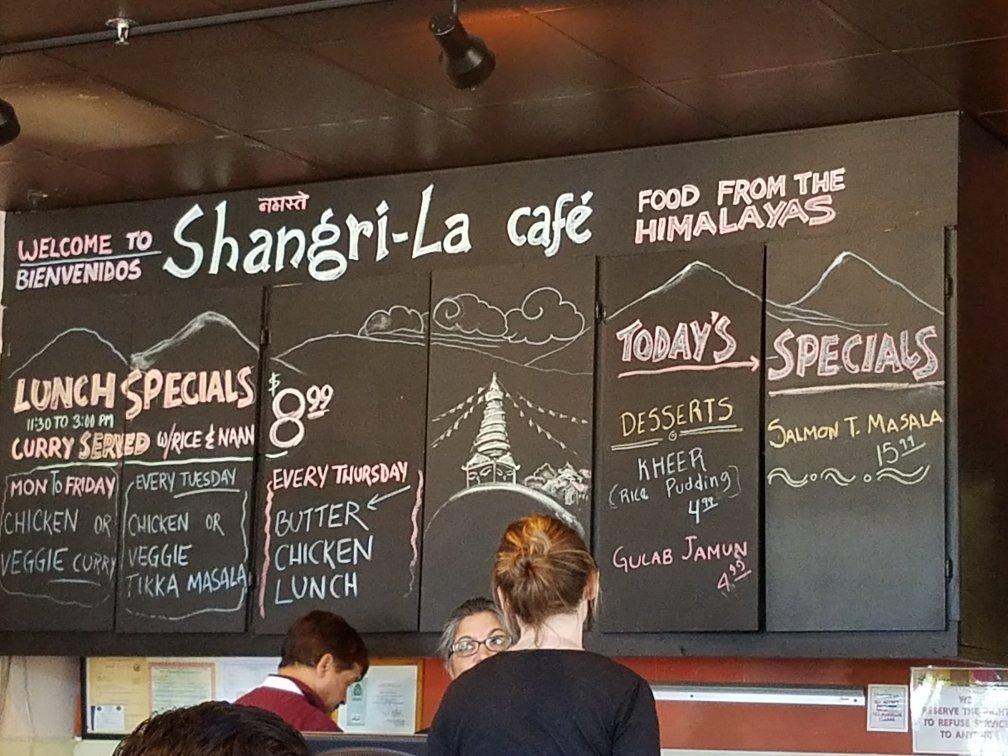 नमस्ते
WELCOME TO
BIENVENIDOS
Shangri-La café
FOOD FROM THE
HIMALAYAS
LUNCH SPECIALS
11:30 TO 3:00 PM
CURRY SERVED W/RICE & NAAN
MON TO FRIDAY
CHICKEN OR
VEGGIE CURRY
EVERY TUESDAY
CHICKEN OR
VEGGIE
TIKKA MASALA
$8.99
EVERY THURSDAY
BUTTER
CHICKEN
LUNCH
TODAY'S
SPECIALS
DESSERTS
KHEER
(Rice Pudding)
4.99
GULAB JAMUN
4.99
SALMON T. MASALA
15.99
WE
RESERVE THE RIGHT
TO REFUSE SERVICE
TO